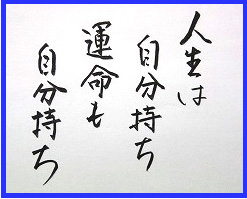 人生は
自分持ち
運命も
自分持ち